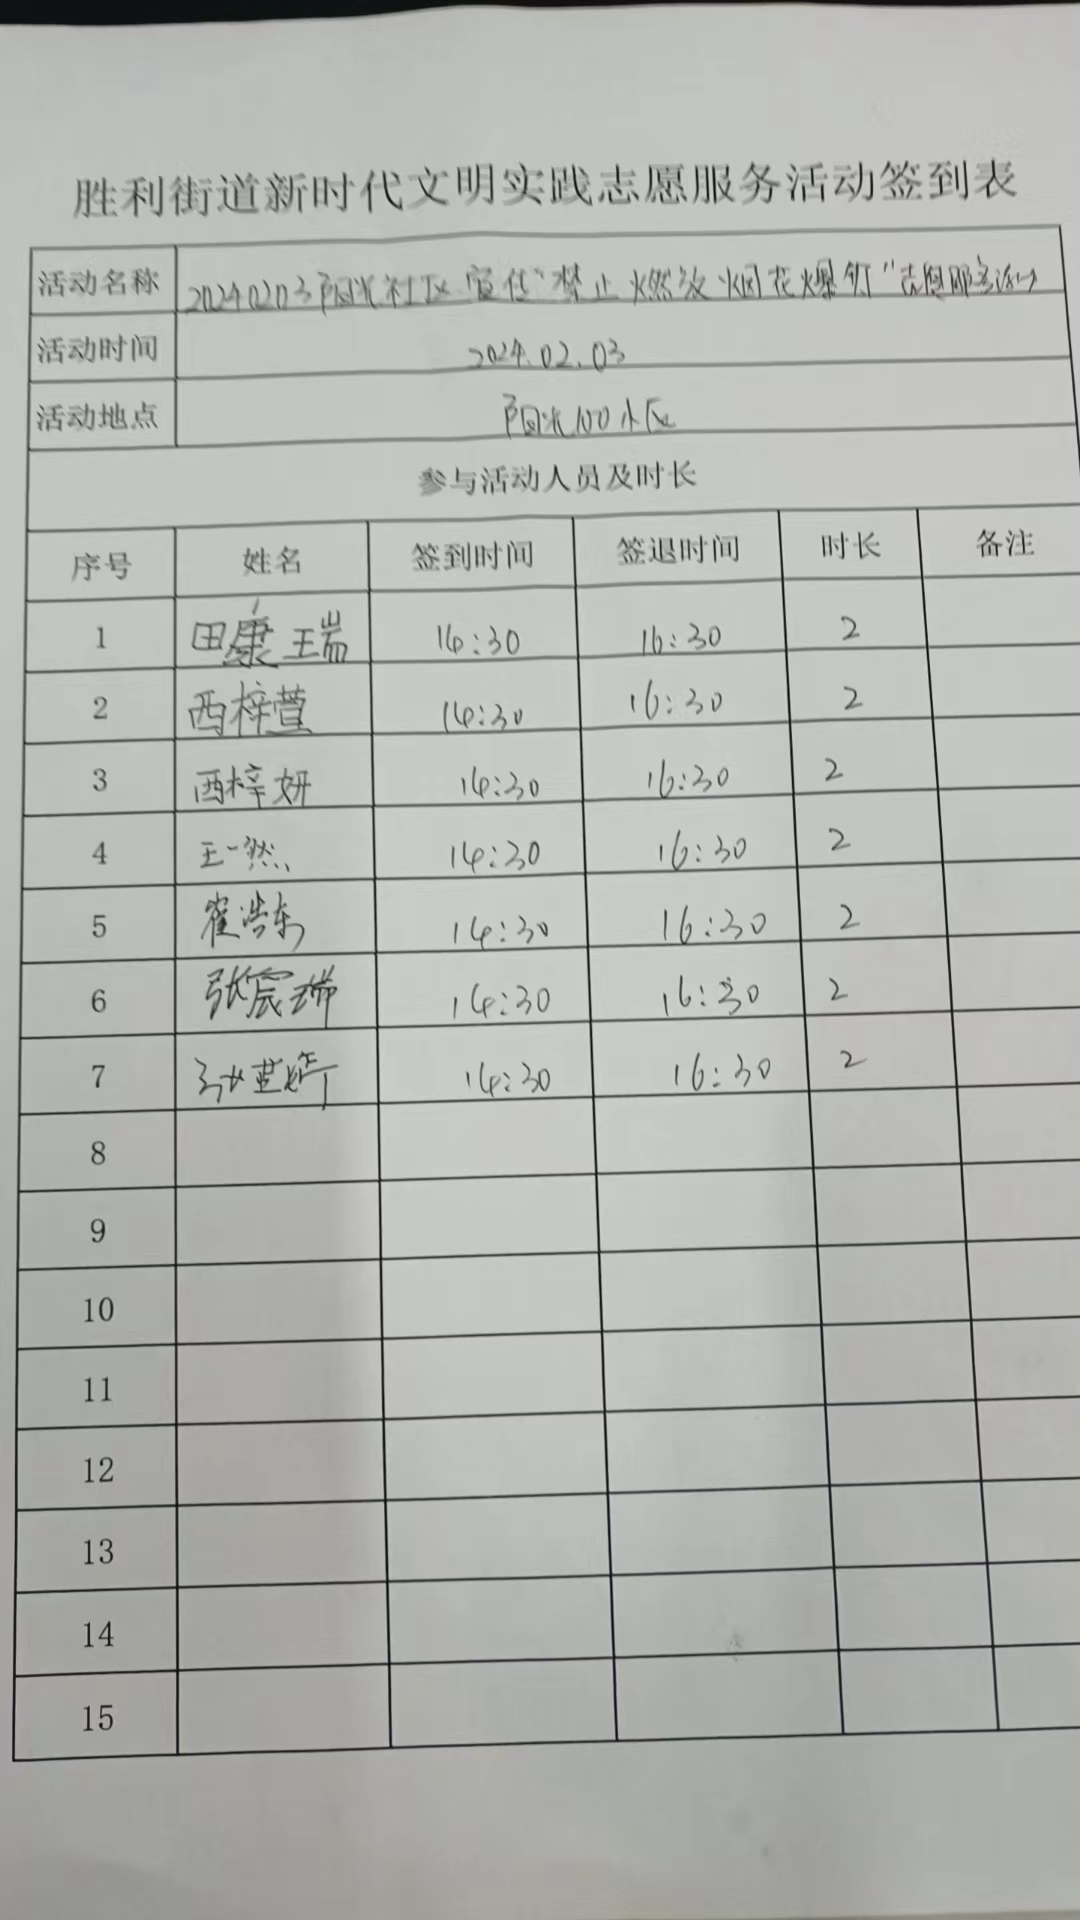 胜利街道新时代文明实践志愿服务活动签到表
活动名称 20240203阳光社区宣传“禁止燃放烟花爆竹”志愿服务活动
活动时间 2024.02.03
活动地点 阳光100小区
参与活动人员及时长
序号 姓名 签到时间 签退时间 时长 备注
1 田康瑞 14:30 16:30 2
2 西梓萱 14:30 16:30 2
3 西梓妍 14:30 16:30 2
4 王一然 14:30 16:30 2
5 崔浩东 14:30 16:30 2
6 张宸瑞 14:30 16:30 2
7 14:30 16:30 2
8
9
10
11
12
13
14
15